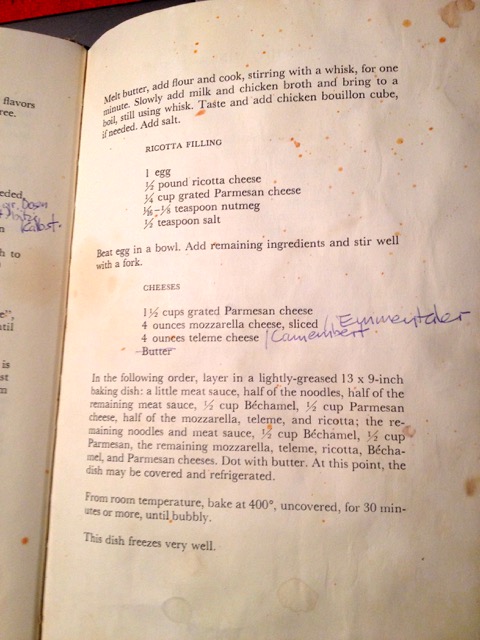 flavors
ree.
eded
n
h to
e",
ntil
is
st
m
Melt butter, add flour and cook, stirring with a whisk, for one
minute. Slowly add milk and chicken broth and bring to a
boil, still using whisk. Taste and add chicken bouillon cube,
if needed. Add salt.
RICOTTA FILLING
1 egg
½ pound ricotta cheese
¼ cup grated Parmesan cheese
1/16-⅛ teaspoon nutmeg
½ teaspoon salt
Beat egg in a bowl. Add remaining ingredients and stir well
with a fork.
CHEESES
1½ cups grated Parmesan cheese
4 ounces mozzarella cheese, sliced / Emmentaler
4 ounces teleme cheese / Camembert
Butter
In the following order, layer in a lightly-greased 13 x 9-inch
baking dish: a little meat sauce, half of the noodles, half of the
remaining meat sauce, ½ cup Béchamel, ½ cup Parmesan
cheese, half of the mozzarella, teleme, and ricotta; the re-
maining noodles and meat sauce, ½ cup Béchamel, ½ cup
Parmesan, the remaining mozzarella, teleme, ricotta, Bécha-
mel, and Parmesan cheeses. Dot with butter. At this point, the
dish may be covered and refrigerated.
From room temperature, bake at 400°, uncovered, for 30 min-
utes or more, until bubbly.
This dish freezes very well.